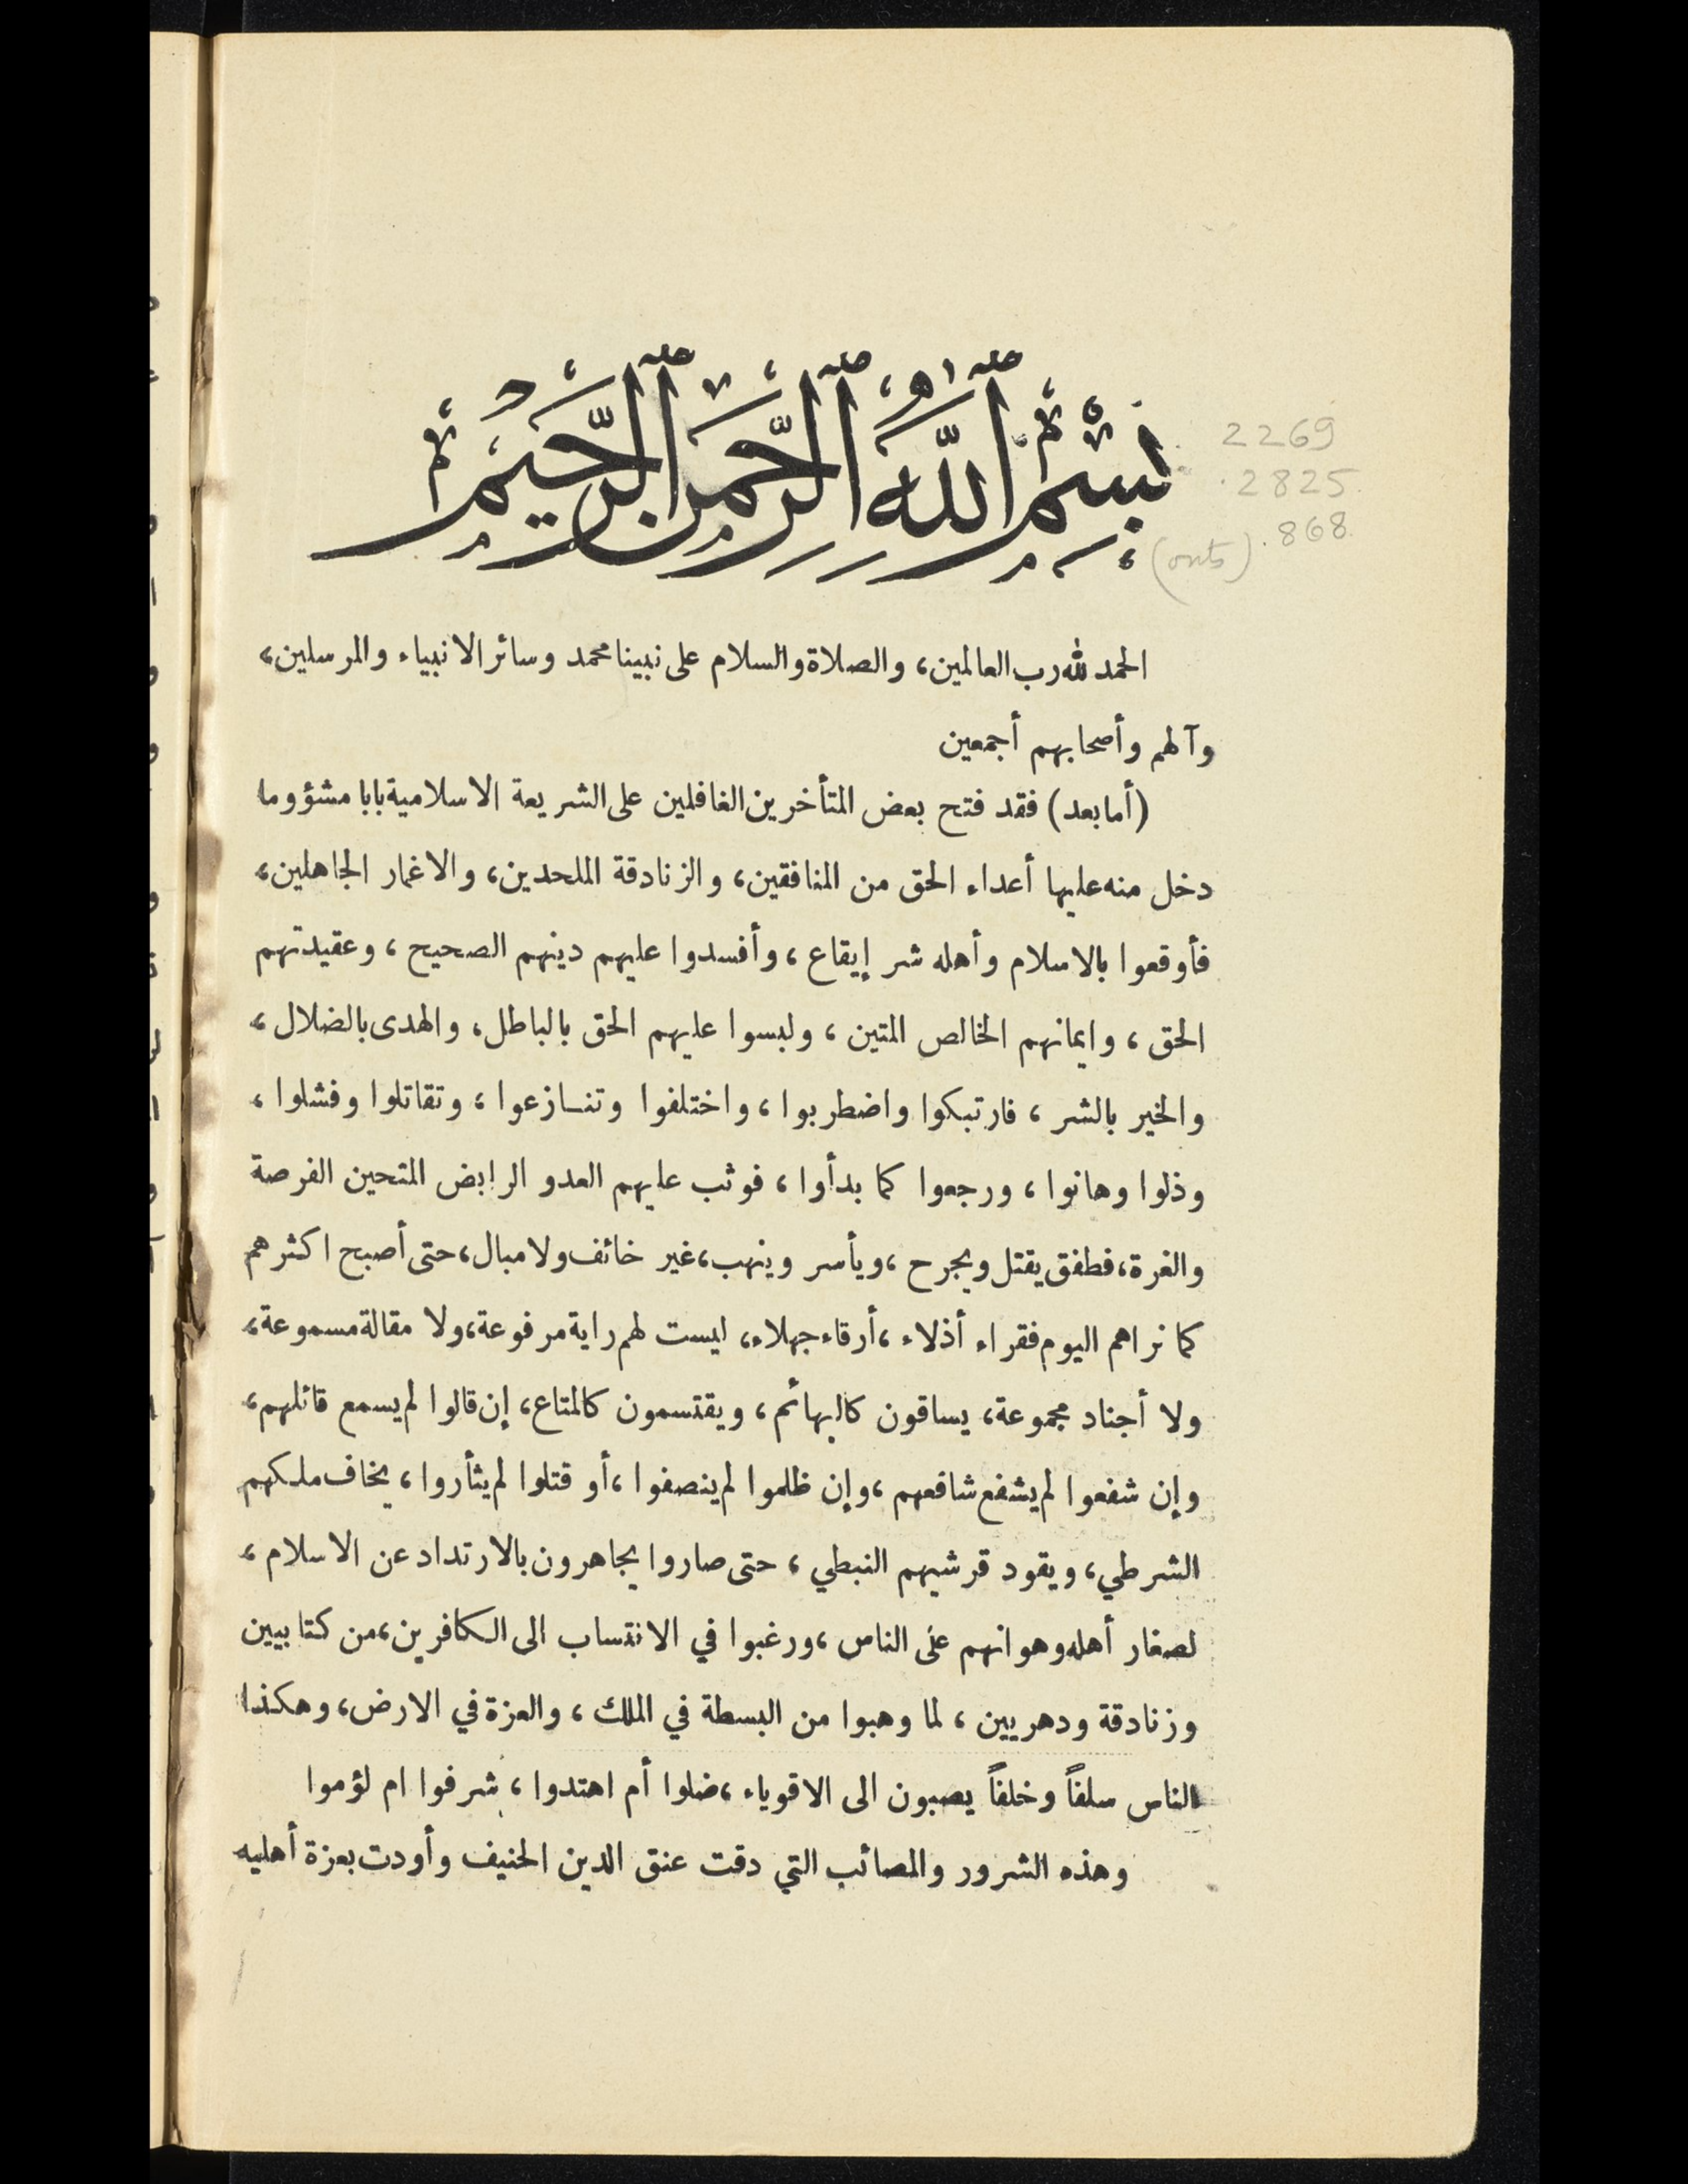 بِسْمِ اللَّهِ الرَّحْمَنِ الرَّحِيمِ
2269
.2825.
.868.
الحمد لله رب العالمين، والصلاة والسلام على نبينا محمد وسائر الانبياء والمرسلين،
وآلهم وأصحابهم أجمعين
(أما بعد) فقد فتح بعض المتأخرين الغافلين على الشريعة الاسلامية بابا مشؤوما
دخل منه عليها أعداء الحق من المنافقين، والزنادقة الملحدين، والاغمار الجاهلين،
فأوقعوا بالاسلام وأهله شر إيقاع، وأفسدوا عليهم دينهم الصحيح، وعقيدتهم
الحق، وايمانهم الخالص المتين، ولبسوا عليهم الحق بالباطل، والهدى بالضلال،
والخير بالشر، فارتبكوا واضطربوا، واختلفوا وتنازعوا، وتقاتلوا وفشلوا،
وذلوا وهانوا، ورجعوا كما بدأوا، فوثب عليهم العدو الرابض المتحين الفرصة
والغرة، فطفق يقتل ويجرح، ويأسر وينهب، غير خائف ولا مبال، حتى أصبح اكثرهم
كما نراهم اليوم فقراء أذلاء، أرقاء جهلاء، ليست لهم راية مرفوعة، ولا مقالة مسموعة،
ولا أجناد مجموعة، يساقون كالبهائم، ويقتسمون كالمتاع، إن قالوا لم يسمع قائلهم،
وإن شفعوا لم يشفع شافعهم، وإن ظلموا لم ينصفوا، أو قتلوا لم يثأروا، يخاف ملكهم
الشرطي، ويقود قرشيهم النبطي، حتى صاروا يجاهرون بالارتداد عن الاسلام،
لصغار أهله وهوانهم على الناس، ورغبوا في الانتساب الى الكافرين، من كتابيين
وزنادقة ودهريين، لما وهبوا من البسطة في الملك، والعزة في الارض، وهكذا
الناس سلفاً وخلفاً يصبون الى الاقوياء، ضلوا أم اهتدوا، شرفوا ام لؤموا
وهذه الشرور والمصائب التي دقت عنق الدين الحنيف وأودت بعزة أهليه